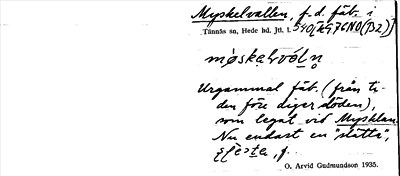 Myskelvallen, f.d. fäb. i
Tännäs sn, Hede hd. Jtl. l.
Urgammal fäb. (från ti-
den före digerdöden),
som legat vid Mysklan.
Nu endast en "slåtta",
f.
O. Arvid Gudmundson 1935.